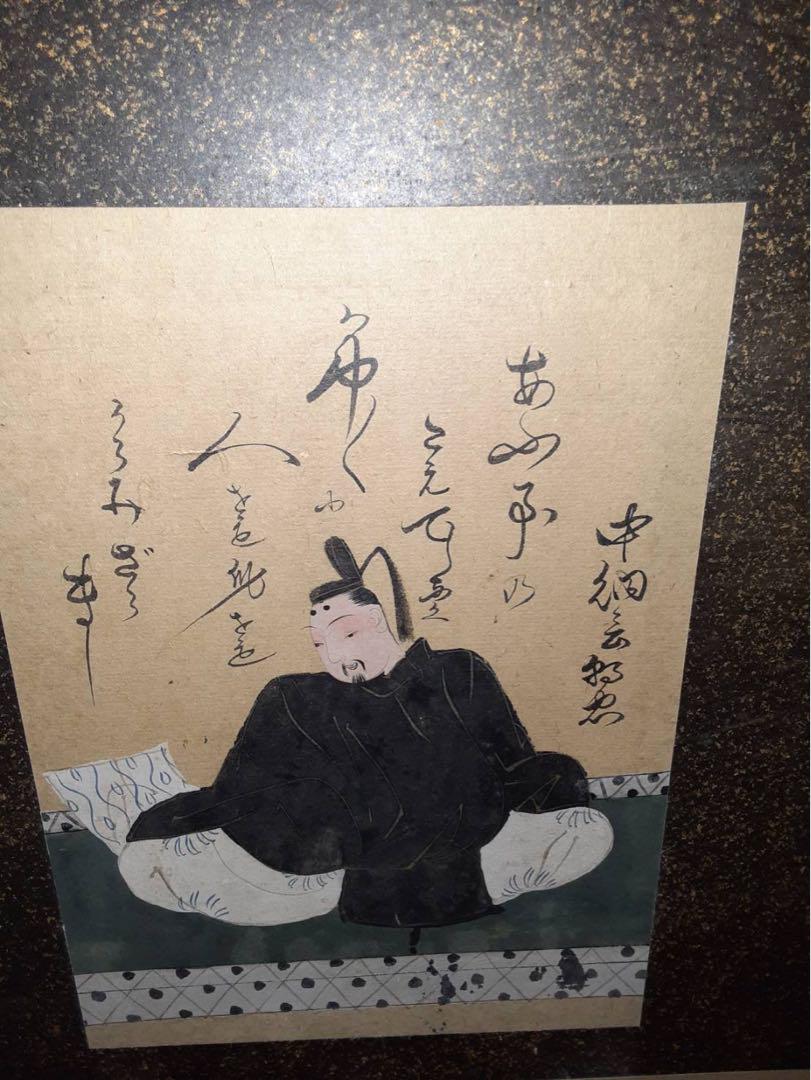 中納言朝忠
あふ事の
たえてしなく
ハ中〱に
人をも身をも
うらみざらまし